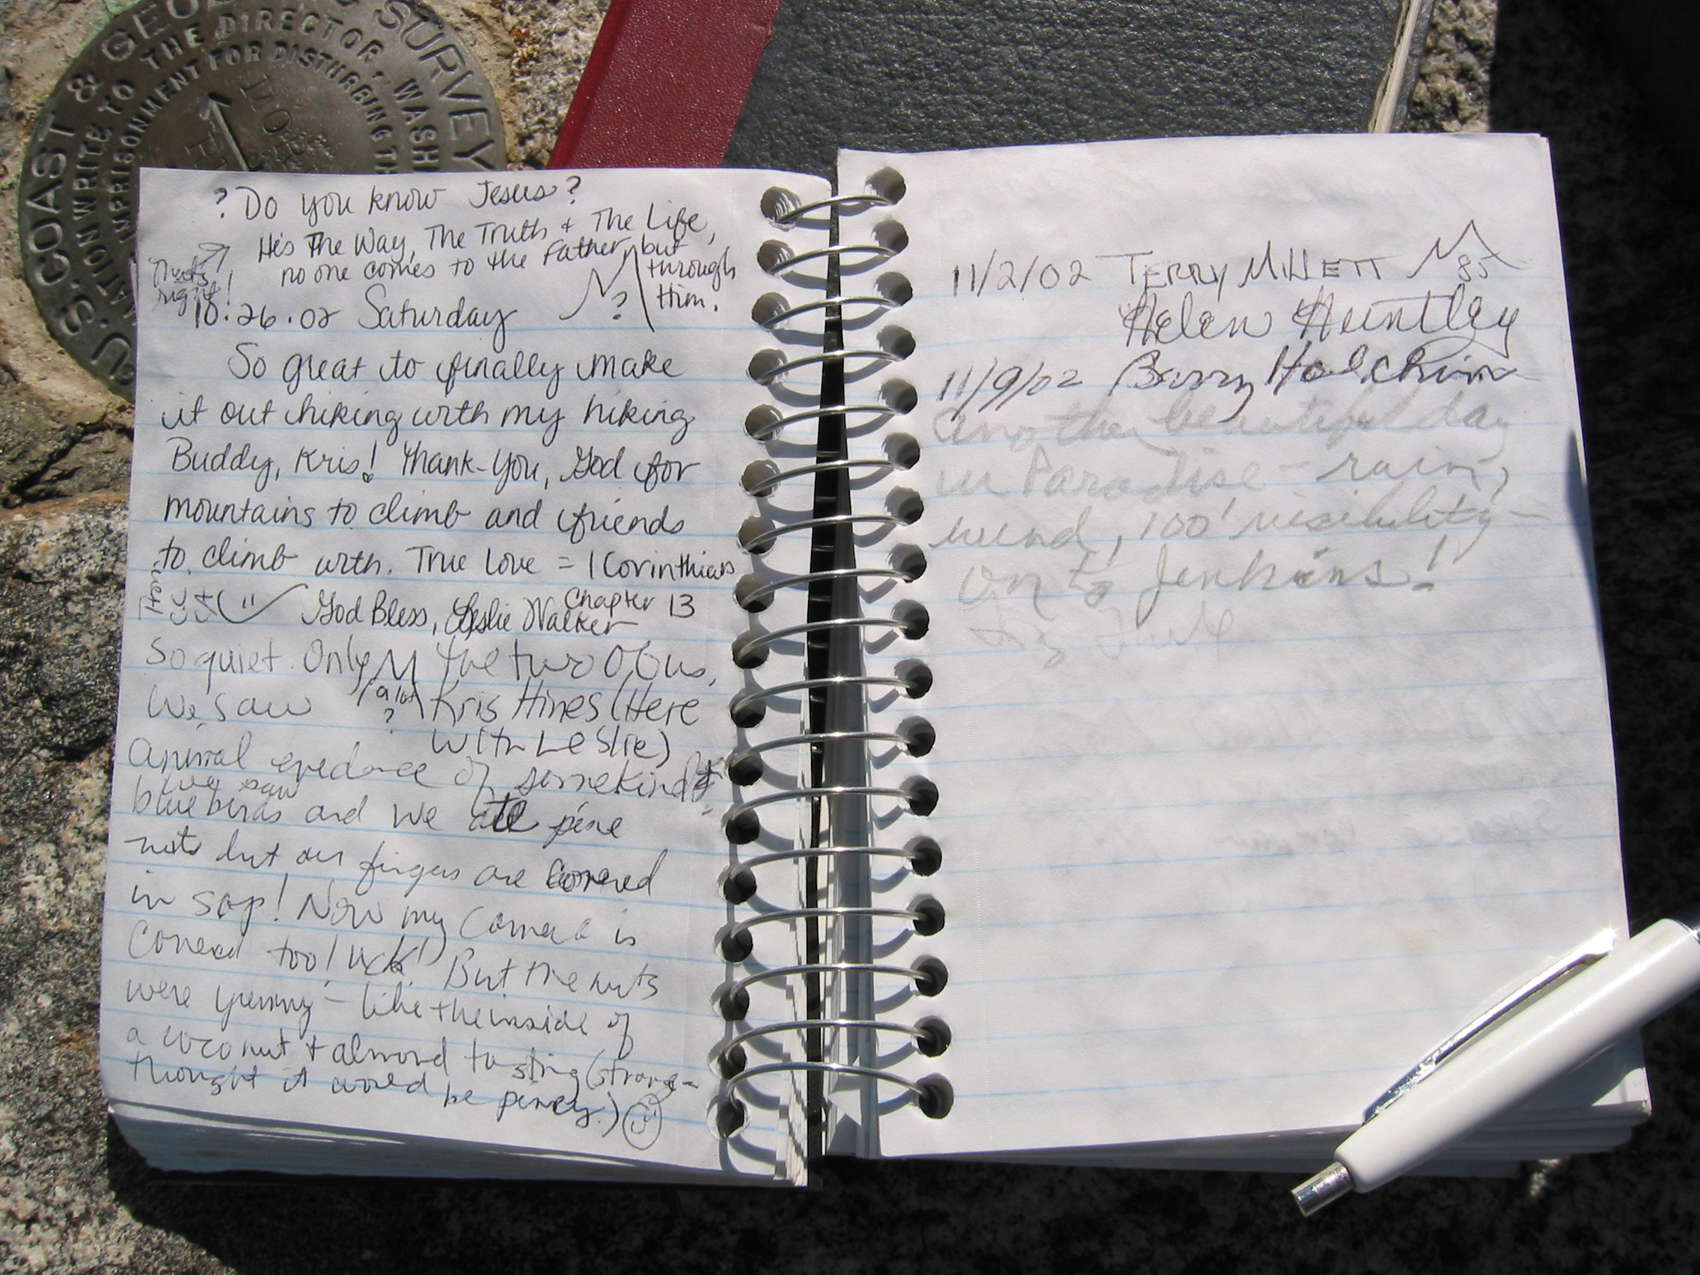 U.S. COAST & GEODETIC SURVEY
WRITE TO THE DIRECTOR, WASH
IMPRISONMENT FOR DISTURBING TH
? Do you know Jesus?
He's The Way, The Truth + The Life,
no one comes to the Father, but
through
Him.
That's
right!
?
10.26.02 Saturday
So great to finally make
it out hiking with my hiking
Buddy, Kris! Thank-You, God for
mountains to climb and friends
to climb with. True Love = 1 Corinthians
Chapter 13
God Bless, Leslie Walker
So quiet. Only the two of us,
We saw
(a lot
?
Kris Hines (Here
With Leslie)
animal evidence of some kind
we saw
blue birds and we ate pine
nuts but our fingers are covered
in sap! Now my camera is
covered too! Uck! But the nuts
were yummy - like the inside of
a coconut + almond tasting (strange-
thought it would be piney.)
11/2/02 TERRY MILLETT 85
Helen Huntley
11/9/02 Barry Holchin
Another beautiful day
in Paradise - rain,
wind, 100' visibility -
on to Jenkins!